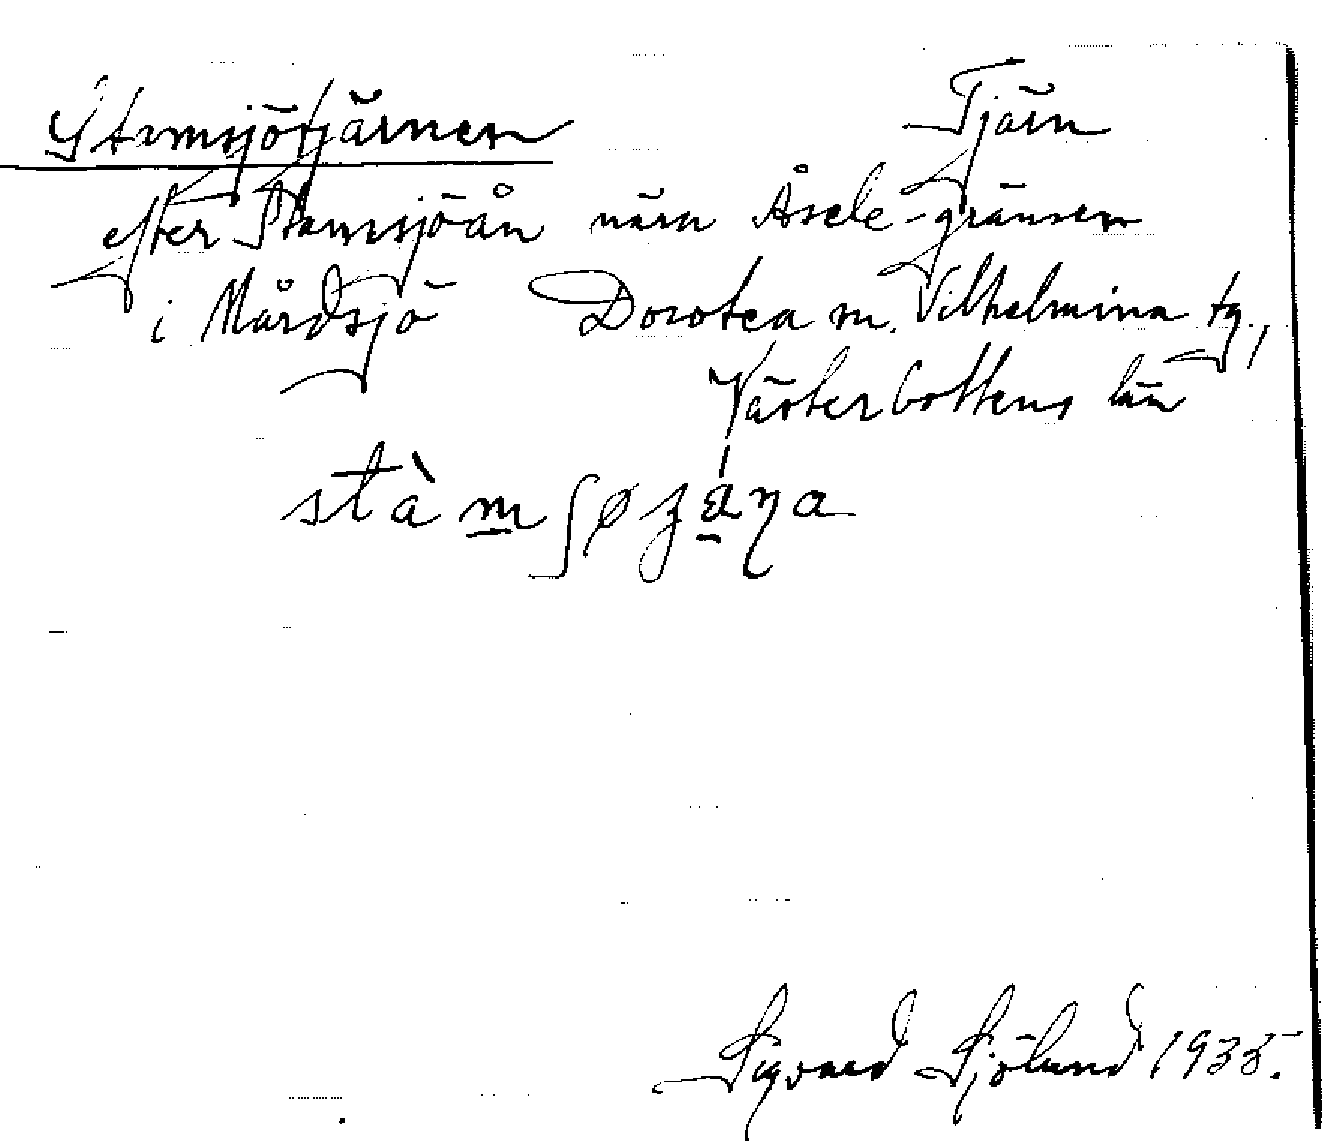 Stamsjötjärnen Tjärn
efter Stamsjöån nära Åsele-gränsen
i Mårdsjö Dorotea m. Vilhelmina tg.,
Västerbottens län
Sigvard Sjölund 1935.